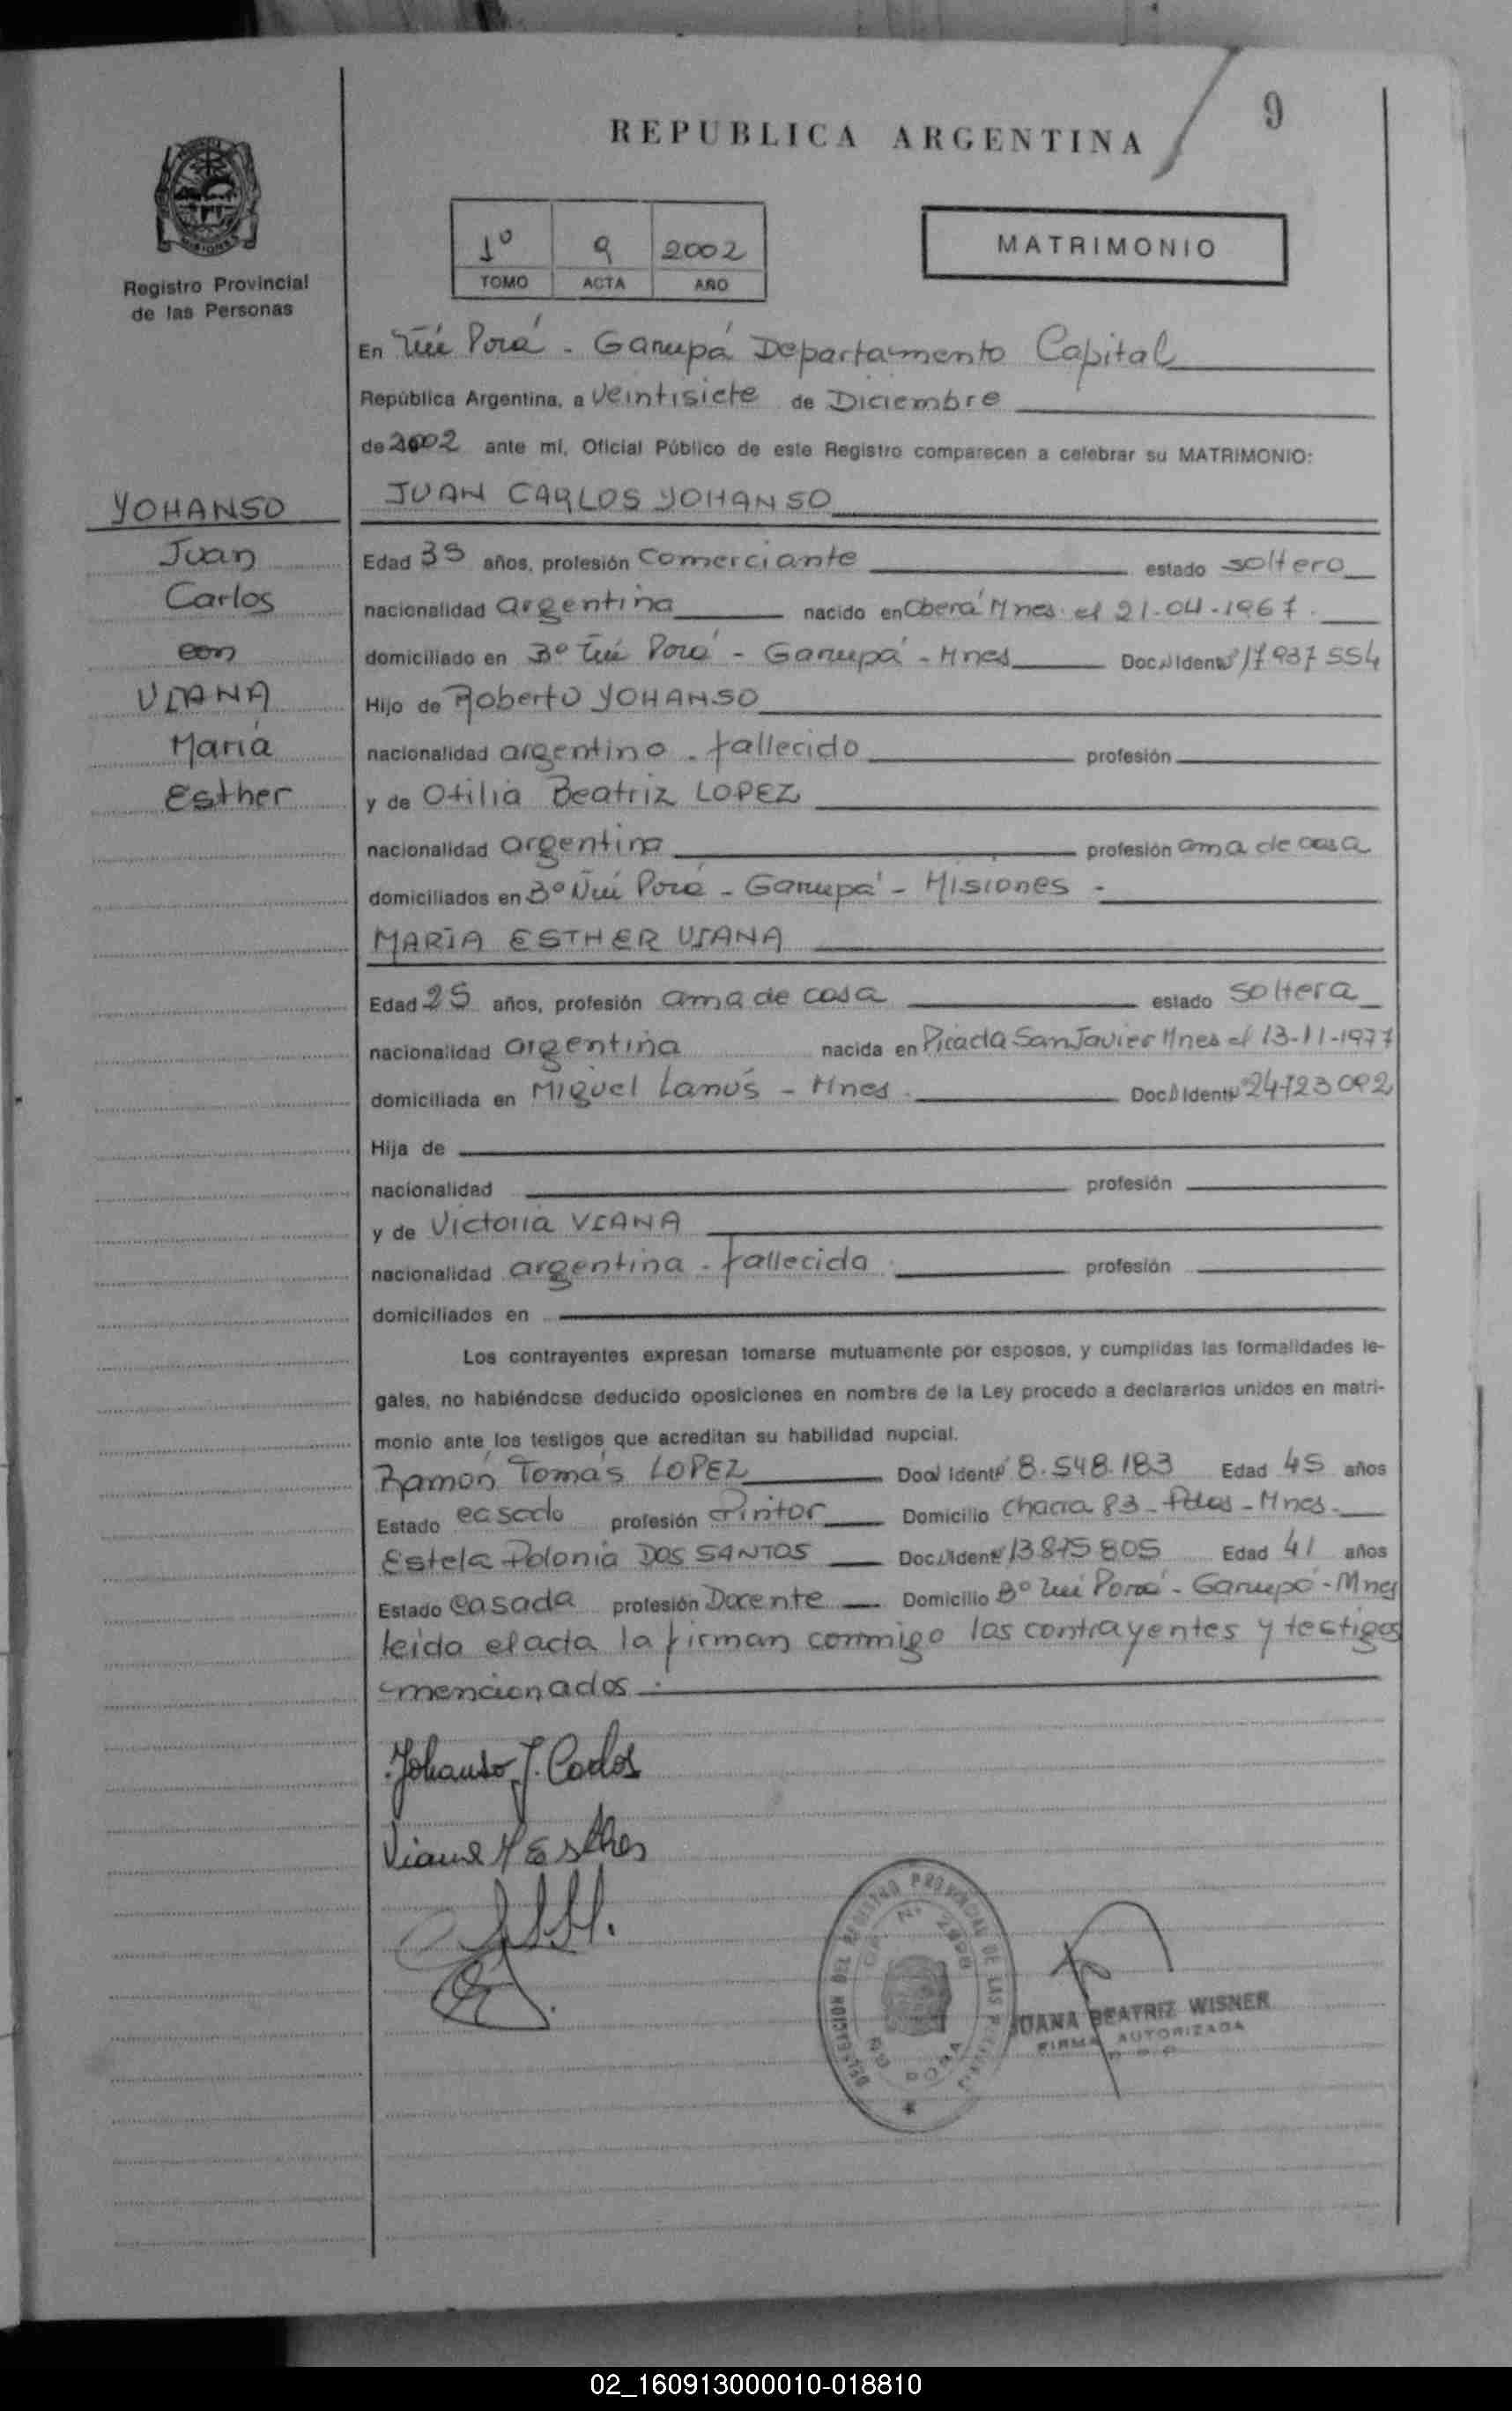 9
REPUBLICA ARGENTINA
1º 9 2002
TOMO ACTA AÑO
MATRIMONIO
MISIONES
Registro Provincial
de las Personas
En Ñu Porá - Garupá Departamento Capital
República Argentina, a Veintisiete de Diciembre
de 2002 ante mí, Oficial Público de este Registro comparecen a celebrar su MATRIMONIO:
YOHANSO
Juan
Carlos
con
VIANA
María
Esther
JUAN CARLOS YOHANSO
Edad 35 años, profesión comerciante estado soltero
nacionalidad argentina nacido en Oberá Mnes el 21-04-1967
domiciliado en Bº Ñu Porá - Garupá - Mnes Doc. Ident. 17937554
Hijo de Roberto YOHANSO
nacionalidad argentino - fallecido profesión
y de Otilia Beatriz LOPEZ
nacionalidad argentina profesión ama de casa
domiciliados en Bº Ñu Porá - Garupá - Misiones -
MARIA ESTHER VIANA
Edad 25 años, profesión ama de casa estado soltera
nacionalidad argentina nacida en Picada San Javier Mnes el 13-11-1977
domiciliada en Miguel Lanús - Mnes Doc. Ident.
Hija de
nacionalidad profesión
y de Victoria VIANA
nacionalidad argentina - fallecida profesión
domiciliados en
Los contrayentes expresan tomarse mutuamente por esposos, y cumplidas las formalidades le-
gales, no habiéndose deducido oposiciones en nombre de la Ley procedo a declararlos unidos en matri-
monio ante los testigos que acreditan su habilidad nupcial.
Ramón Tomás LOPEZ Doc. Ident. 8.548.183 Edad 45 años
Estado casado profesión Pintor Domicilio Chacra 83 - Pdas - Mnes -
Estela Polonia DOS SANTOS Doc. Ident. 13875805 Edad 41 años
Estado casada profesión Docente Domicilio Bº Ñu Porá - Garupá - Mnes
leido el acta la firman conmigo los contrayentes y testigos
mencionados -
Yohanso J. Carlos
Viana M Esther
DELEGACION DEL REGISTRO PROVINCIAL DE LAS PERSONAS
ÑU PORA
JUANA BEATRIZ WISNER
FIRMA AUTORIZADA
02_160913000010-018810